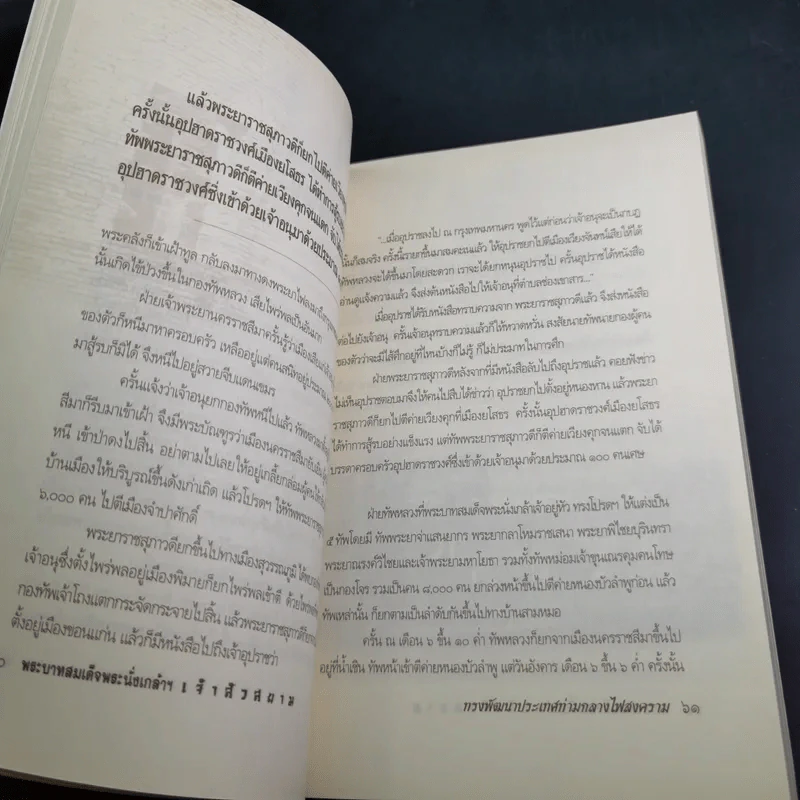 แล้วพระยาราชสุภาวดีก็ยกไปตีค่าย
ครั้งนั้นอุปฮาดราชวงศ์เมืองยโสธร ได้ทำการสู้
ทัพพระยาราชสุภาวดีก็ตีค่ายเวียงคุกจนแตก จับได้
อุปฮาดราชวงศ์ซึ่งเข้าด้วยเจ้าอนุมาด้วยประมาณ
พระคลังก็เข้าเฝ้าทูล กลับลงมาทางดงพระยาไฟ
นั้นเกิดไข้ป่วงขึ้นในกองทัพหลวง เสียไพร่พลเป็นอันมาก
ฝ่ายเจ้าพระยานครราชสีมาครั้นรู้ว่าเมืองเสีย
ของตัวก็หนีมาหาครอบครัว เหลืออยู่แต่คนสนิทอยู่ประมาณ
มาสู้รบก็มิได้ จึงหนีไปอยู่สวายจีบแดนเขมร
ครั้นแจ้งว่าเจ้าอนุยกกองทัพหนีไปแล้ว ทัพหลวง
สีมาก็รีบมาเข้าเฝ้า จึงมีพระบัณฑูรว่าเมืองนครราชสีมายับเยิน
หนี เข้าป่าดงไปสิ้น อย่าตามไปเลยให้อยู่เกลี้ยกล่อมผู้คน
บ้านเมืองให้บริบูรณ์ขึ้นดังเก่าเถิด แล้วโปรดฯ ให้ทัพพระยาราช
๖,๐๐๐ คน ไปตีเมืองจำปาศักดิ์
พระยาราชสุภาวดียกขึ้นไปทางเมืองสุวรรณภูมิ ได้
เจ้าอนุซึ่งตั้งไพร่พลอยู่เมืองพิมายก็ยกไพร่พลเข้าตี ด้วยไพร่พล
กองทัพเจ้าโถงแตกกระจัดกระจายไปสิ้น แล้วพระยาราชสุภาวดีก็ยก
ตั้งอยู่เมืองขอนแก่น แล้วก็มีหนังสือไปถึงเจ้าอุปราชว่า
พระบาทสมเด็จพระนั่งเกล้าฯ เจ้าสัวสยาม
"...เมื่ออุปราชลงไป ณ กรุงเทพมหานคร พูดไว้แต่ก่อนว่าเจ้าอนุจะเป็นกบฏ
นั้นก็สมจริง ครั้งนี้เรายกขึ้นมาสมคะเนแล้ว ให้อุปราชยกไปตีเมืองเวียงจันทน์เสียให้ได้
ทัพหลวงจะได้ขึ้นมาโดยสะดวก เราจะได้ยกหนุนอุปราชไป ครั้นอุปราชได้หนังสือ
อ่านดูแจ้งความแล้ว จึงส่งต้นหนังสือไปให้เจ้าอนุที่ตำบลช่องเขาสาร..."
เมื่ออุปราชได้รับหนังสือทราบความจาก พระยาราชสุภาวดีแล้ว จึงส่งหนังสือ
ต่อไปยังเจ้าอนุ ครั้นเจ้าอนุทราบความแล้วก็ให้หวาดหวั่น สงสัยนายทัพนายกองผู้คน
ของตัวว่าจะมีไส้ศึกอยู่ที่ไหนบ้างก็ไม่รู้ ก็ไม่ประมาทในการศึก
ฝ่ายพระยาราชสุภาวดีหลังจากที่มีหนังสือลับไปถึงอุปราชแล้ว คอยฟังข่าว
ไม่เห็นอุปราชตอบมาจึงให้คนไปสืบได้ข่าวว่า อุปราชยกไปตั้งอยู่หนองหาน แล้วพระยา
ราชสุภาวดีก็ยกไปตีค่ายเวียงคุกที่เมืองยโสธร ครั้งนั้นอุปฮาดราชวงศ์เมืองยโสธร
ได้ทำการสู้รบอย่างแข็งแรง แต่ทัพพระยาราชสุภาวดีก็ตีค่ายเวียงคุกจนแตก จับได้
บรรดาครอบครัวอุปฮาดราชวงศ์ซึ่งเข้าด้วยเจ้าอนุมาด้วยประมาณ ๑๐๐ คนเศษ
ฝ่ายทัพหลวงที่พระบาทสมเด็จพระนั่งเกล้าเจ้าอยู่หัว ทรงโปรดฯ ให้แต่งเป็น
๕ ทัพโดยมี ทัพพระยาจ่าแสนยากร พระยากลาโหมราชเสนา พระยาพิไชยบุรินทรา
พระยาณรงค์วิไชยและเจ้าพระยามหาโยธา รวมทั้งทัพหม่อมเจ้าขุนเณรคุมคนโทษ
เป็นกองโจร รวมเป็นคน ๘,๐๐๐ คน ยกล่วงหน้าขึ้นไปตีค่ายหนองบัวลำพูก่อน แล้ว
ทัพเหล่านั้น ก็ยกตามเป็นลำดับกันขึ้นไปทางบ้านสามหมอ
ครั้น ณ เดือน ๖ ขึ้น ๑๐ ค่ำ ทัพหลวงก็ยกจากเมืองนครราชสีมาขึ้นไป
อยู่ที่น้ำเชิน ทัพหน้าเข้าตีค่ายหนองบัวลำพู แต่วันอังคาร เดือน ๖ ขึ้น ๖ ค่ำ ครั้งนั้น
ทรงพัฒนาประเทศท่ามกลางไฟสงคราม ๖๑